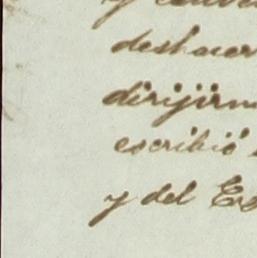 y
deshacer
dirijirm
escribió
y del Es